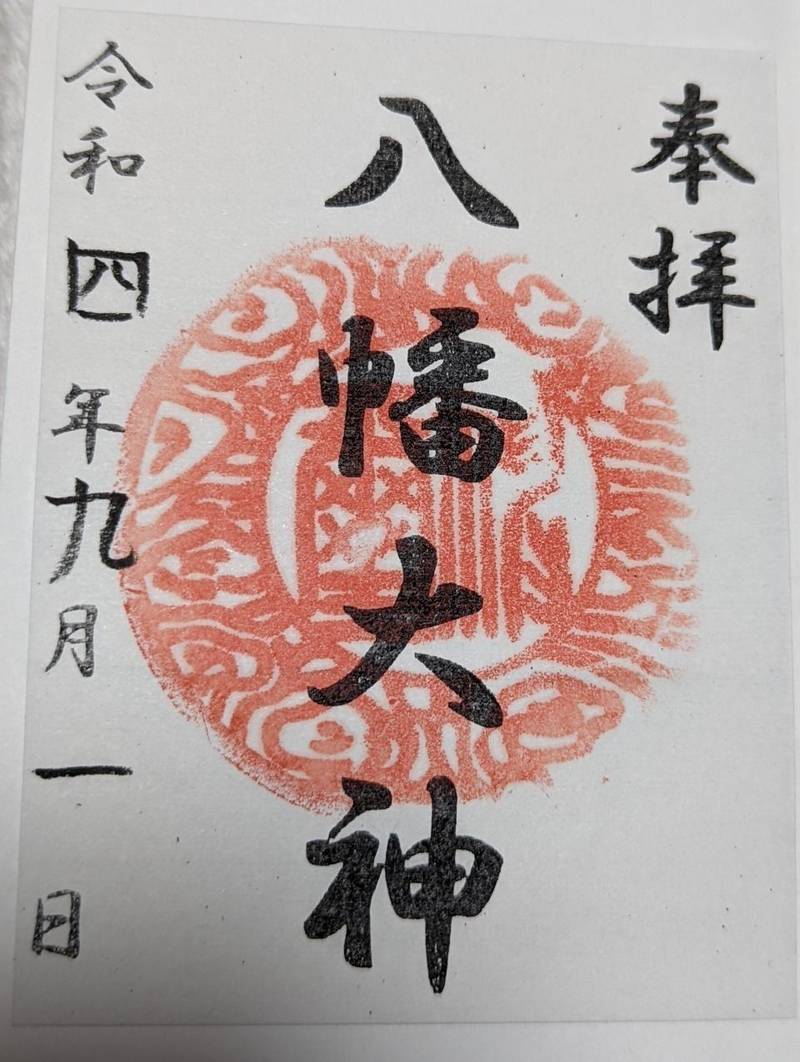 奉拝
八幡大神
令和四年九月一日